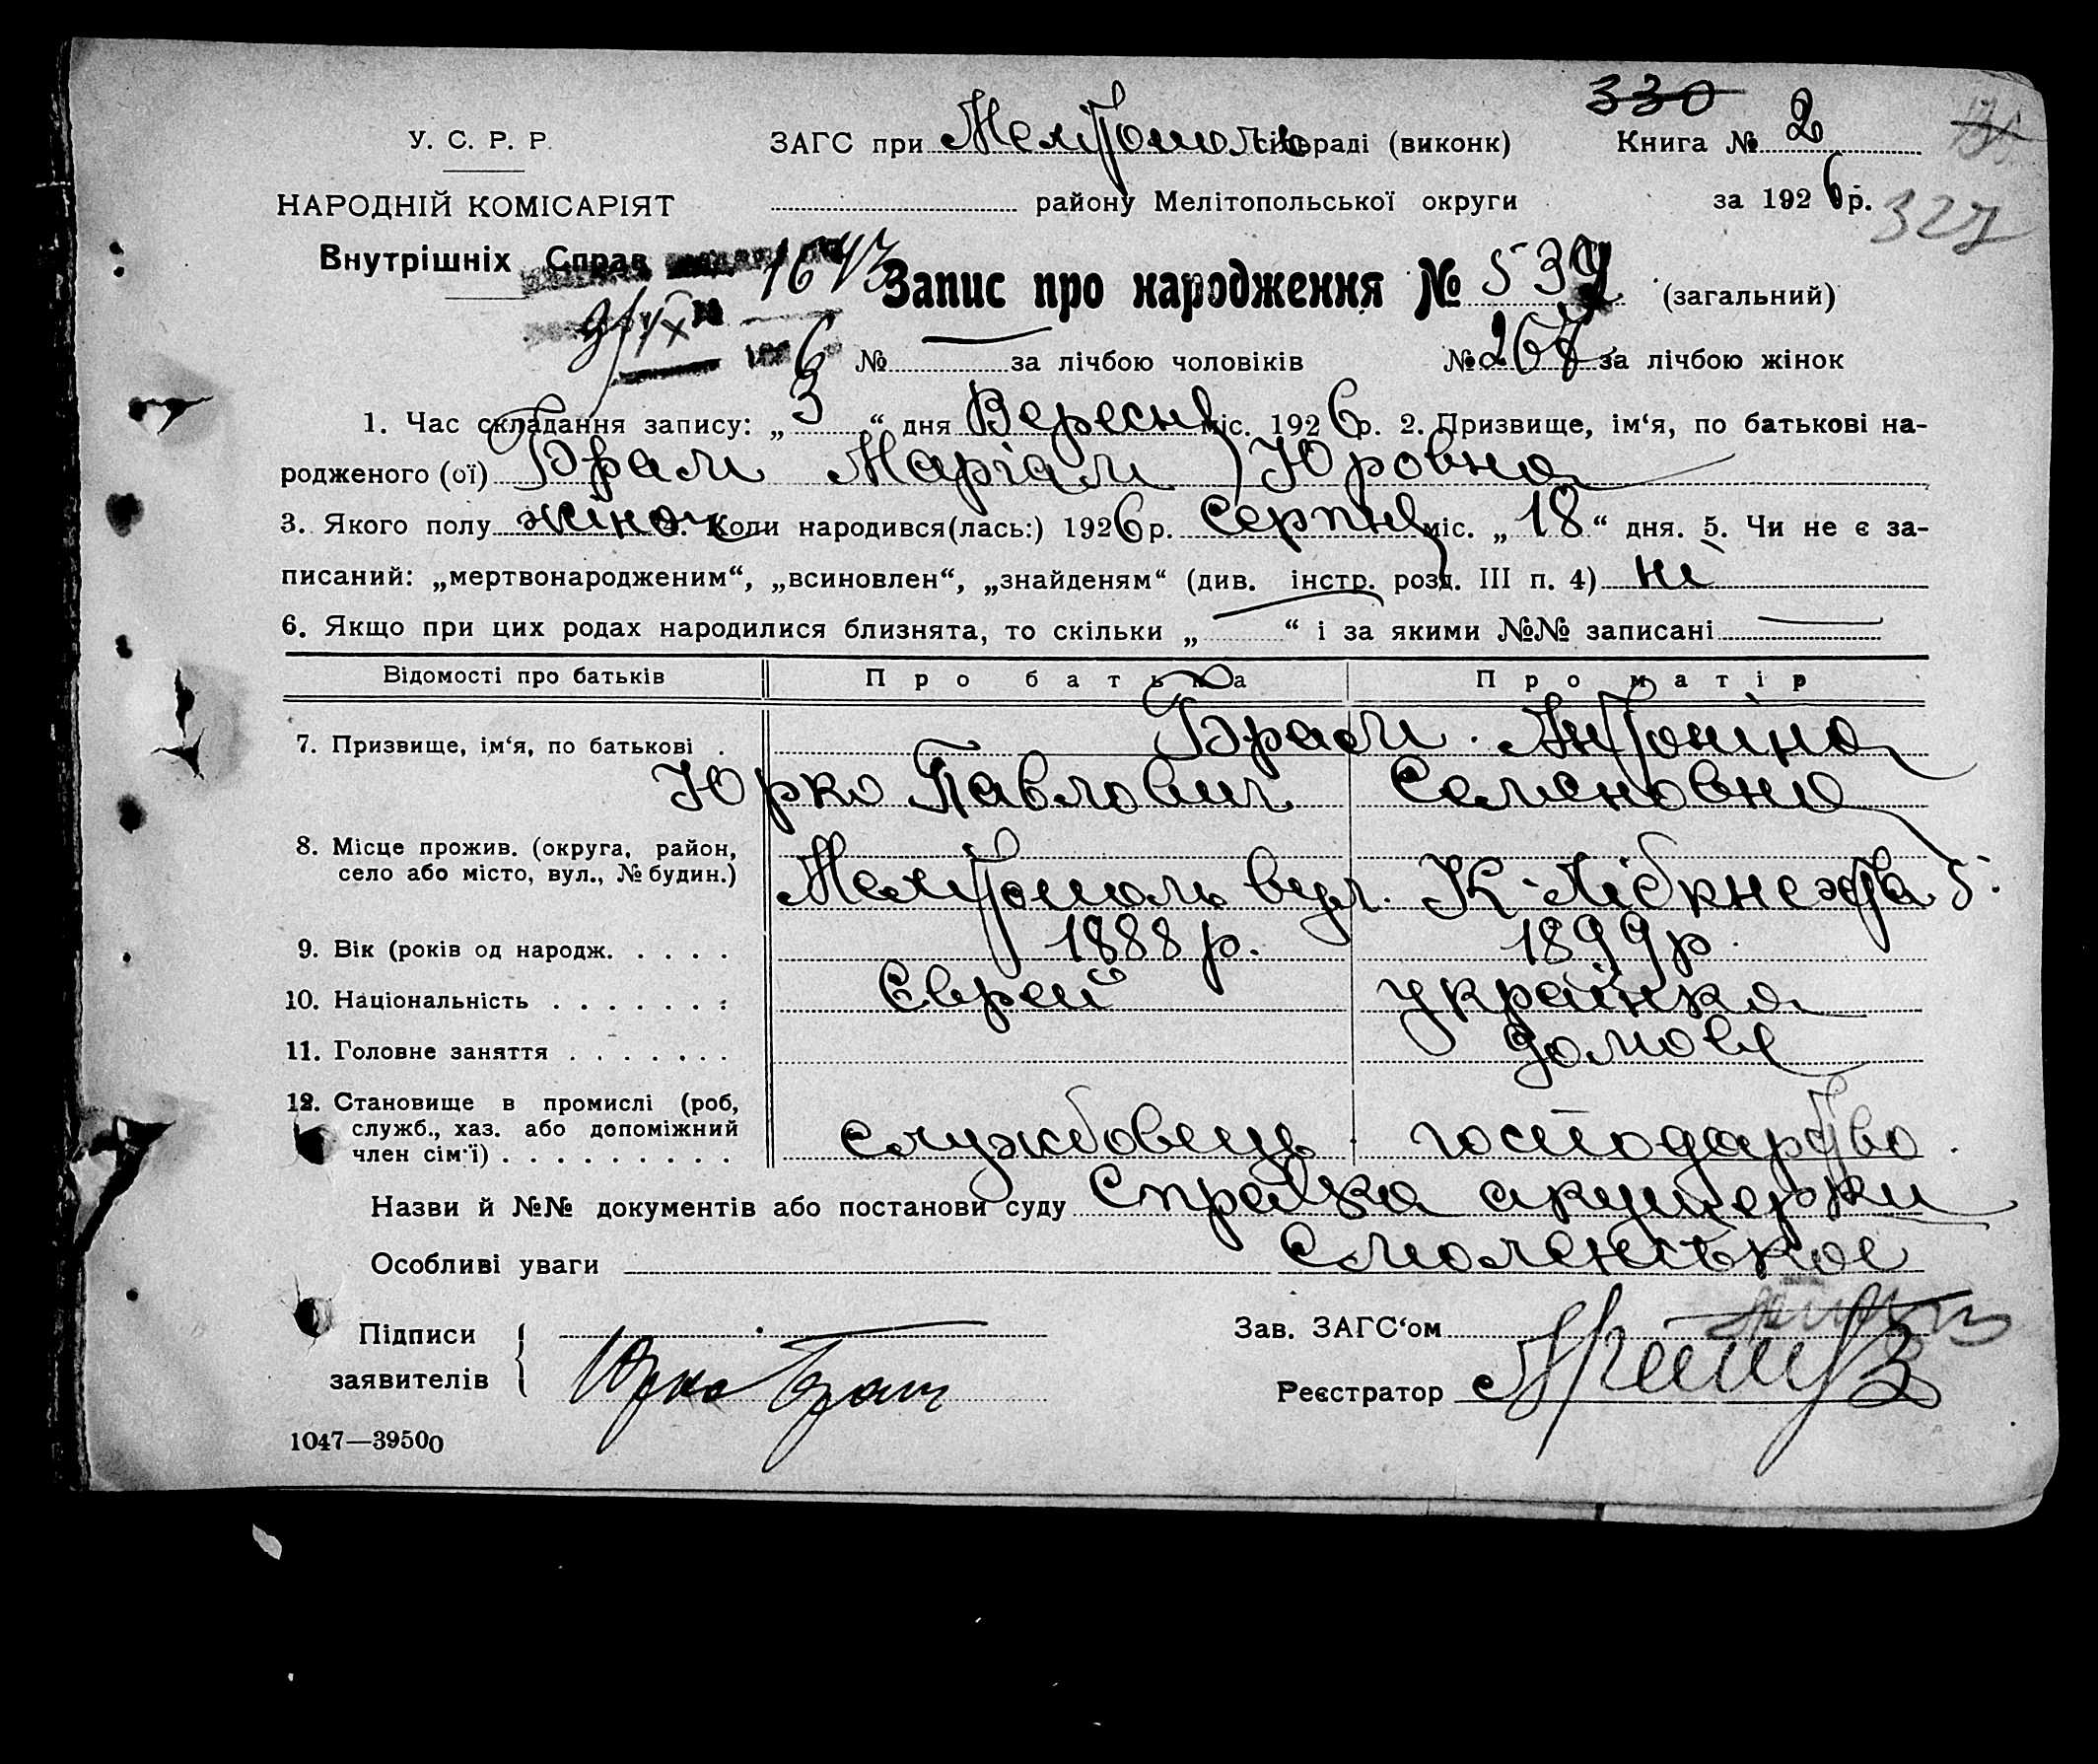 330
У. С. Р. Р.
ЗАГС при Мелітополь сільраді (виконк)
Книга № 2
НАРОДНІЙ КОМІСАРІЯТ
району Мелітопольської округи
за 1926 р.
327
Внутрішніх Справ
1643
Запис про народження № 539 (загальний)
9/IX 6
№ — за лічбою чоловіків № 267 за лічбою жінок
1. Час складання запису: „3“ дня Вересня міс. 1926 р. 2. Призвище, ім‘я, по батькові на-
родженого (ої) Брам Маріам Юровна
3. Якого полу жіноч. Коли народився(лась:) 1926 р. Серпня міс. „18“ дня. 5. Чи не є за-
писаний: „мертвонародженим“, „всиновлен“, „знайденям“ (див. інстр. розд. III п. 4) ні
6. Якщо при цих родах народилися близнята, то скільки „—“ і за якими №№ записані —
Відомості про батьків Про батька Про матір
7. Призвище, ім‘я, по батькові . Брам. Антоніна
Юрко Павлович Семеновна
8. Місце прожив. (округа, район,
село або місто, вул., № будин.) Мелітополь вул. К. Лібкнехта 5.
9. Вік (років од народж. . . . . 1888 р. 1899 р.
10. Національність . . . . . . . Єврей українка
11. Головне заняття . . . . . . . домове
12. Становище в промислі (роб,
служб., хаз. або допоміжний
член сім‘ї) . . . . . . . . . службовець. господарство.
Назви й №№ документів або постанови суду Справка акушерки
Особливі уваги Смоленської
Підписи
заявителів
Юрко Брам
Зав. ЗАГС‘ом
Реєстратор
1047—39500